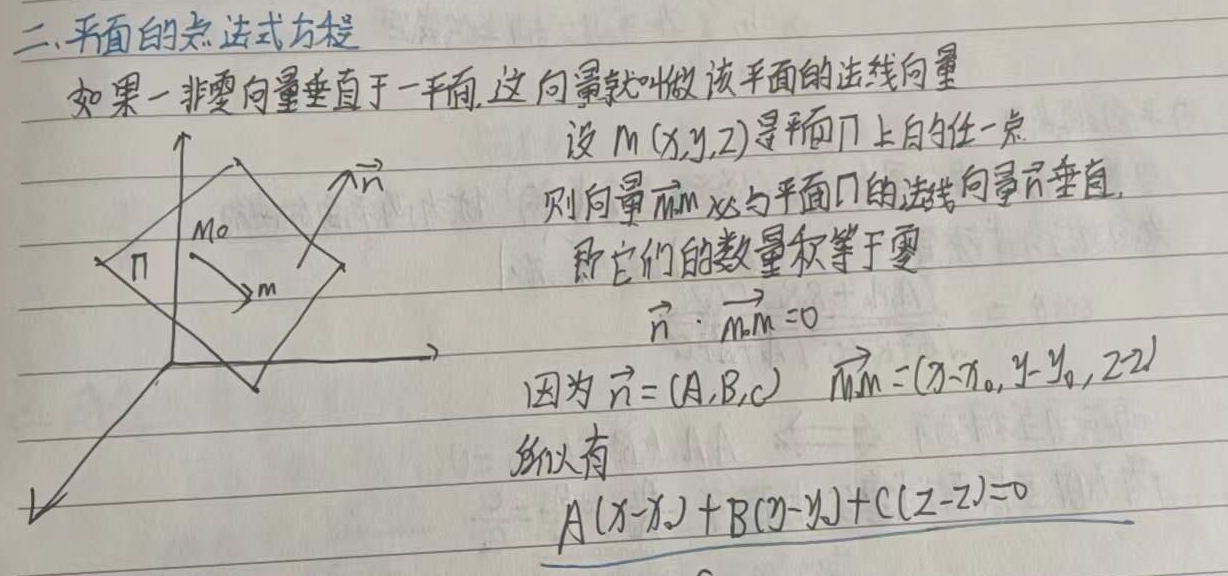 二、平面的点法式方程
如果一非零向量垂直于一平面,这向量就叫做该平面的法线向量
设 M(x,y,z)是平面Π上的任一点
则向量M₀M必与平面Π的法线向量n⃗垂直,
即它们的数量积等于零
n⃗ · M₀M = 0
因为 n⃗ = (A,B,C) M₀M = (x-x₀, y-y₀, z-z₀)
所以有
A(x-x₀)+B(y-y₀)+C(z-z₀)=0
n⃗
M₀
Π
M